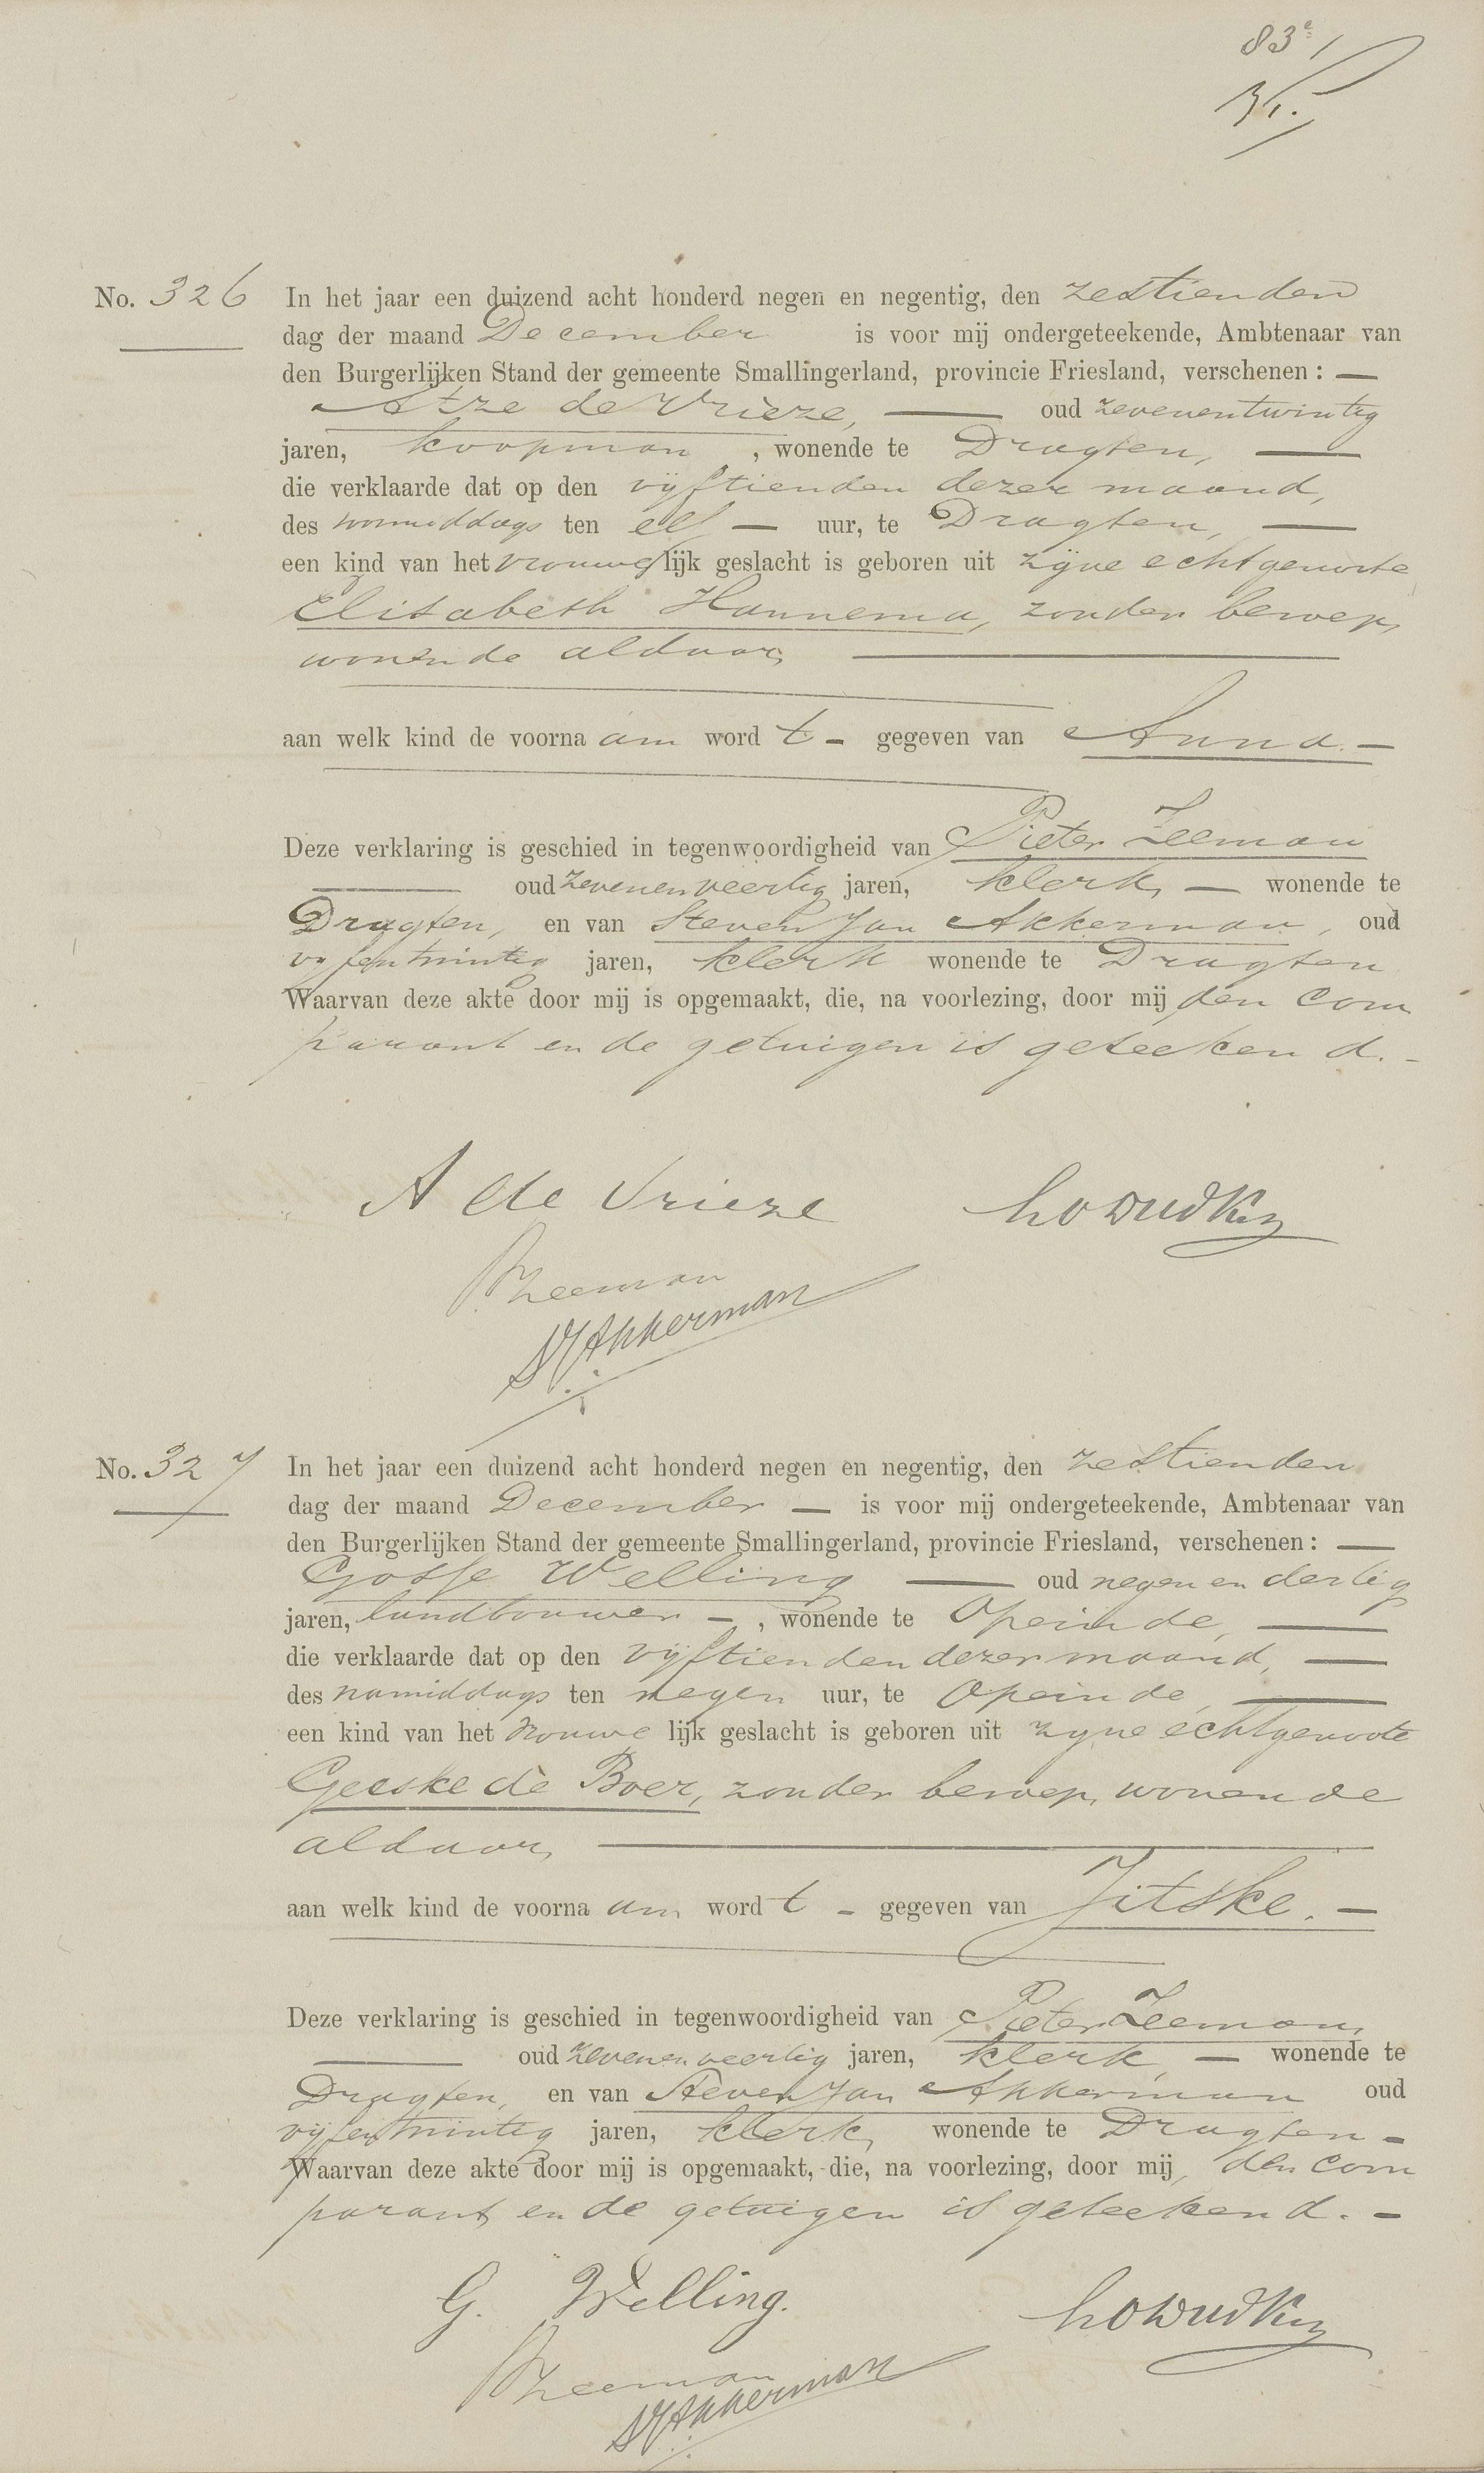 83e
No. 326
In het jaar een duizend acht honderd negen en negentig, den zestienden
dag der maand December is voor mij ondergeteekende, Ambtenaar van
den Burgerlijken Stand der gemeente Smallingerland, provincie Friesland, verschenen: —
Atze de Vrieze, — oud zevenentwintig
jaren, koopman, wonende te Dragten, —
die verklaarde dat op den vijftienden dezer maand,
des voormiddags ten elf — uur, te Dragten, —
een kind van het vrouwelijk geslacht is geboren uit zijne echtgenoote
Elisabeth Hannema, zonder beroep,
wonende aldaar, —
aan welk kind de voornaam wordt - gegeven van Anna. —
Deze verklaring is geschied in tegenwoordigheid van Pieter Zeeman
— oud zevenenveertig jaren, klerk, — wonende te
Dragten, en van Steven Jan Akkerman, oud
vijfentwintig jaren, klerk wonende te Dragten
Waarvan deze akte door mij is opgemaakt, die, na voorlezing, door mij, den com
parant en de getuigen is geteekend. -
A de Vrieze
PZeeman
SJAkkerman
No. 327
In het jaar een duizend acht honderd negen en negentig, den zestienden
dag der maand December — is voor mij ondergeteekende, Ambtenaar van
den Burgerlijken Stand der gemeente Smallingerland, provincie Friesland, verschenen: —
Gosse Welling — oud negen en dertig
jaren, landbouwer -, wonende te Opeinde, —
die verklaarde dat op den vijftienden dezer maand, —
des namiddags ten negen uur, te Opeinde, —
een kind van het vrouwelijk geslacht is geboren uit zijne echtgenoote
Geeske de Boer, zonder beroep, wonende
aldaar, —
aan welk kind de voornaam wordt - gegeven van Jitske. —
Deze verklaring is geschied in tegenwoordigheid van Pieter Zeeman,
— oud zevenenveertig jaren, klerk, — wonende te
Dragten, en van Steven Jan Akkerman oud
vijfentwintig jaren, klerk, wonende te Dragten -
Waarvan deze akte door mij is opgemaakt, die, na voorlezing, door mij, den com
parant en de getuigen is geteekend. -
G. Welling.
PZeeman
SJAkkerman